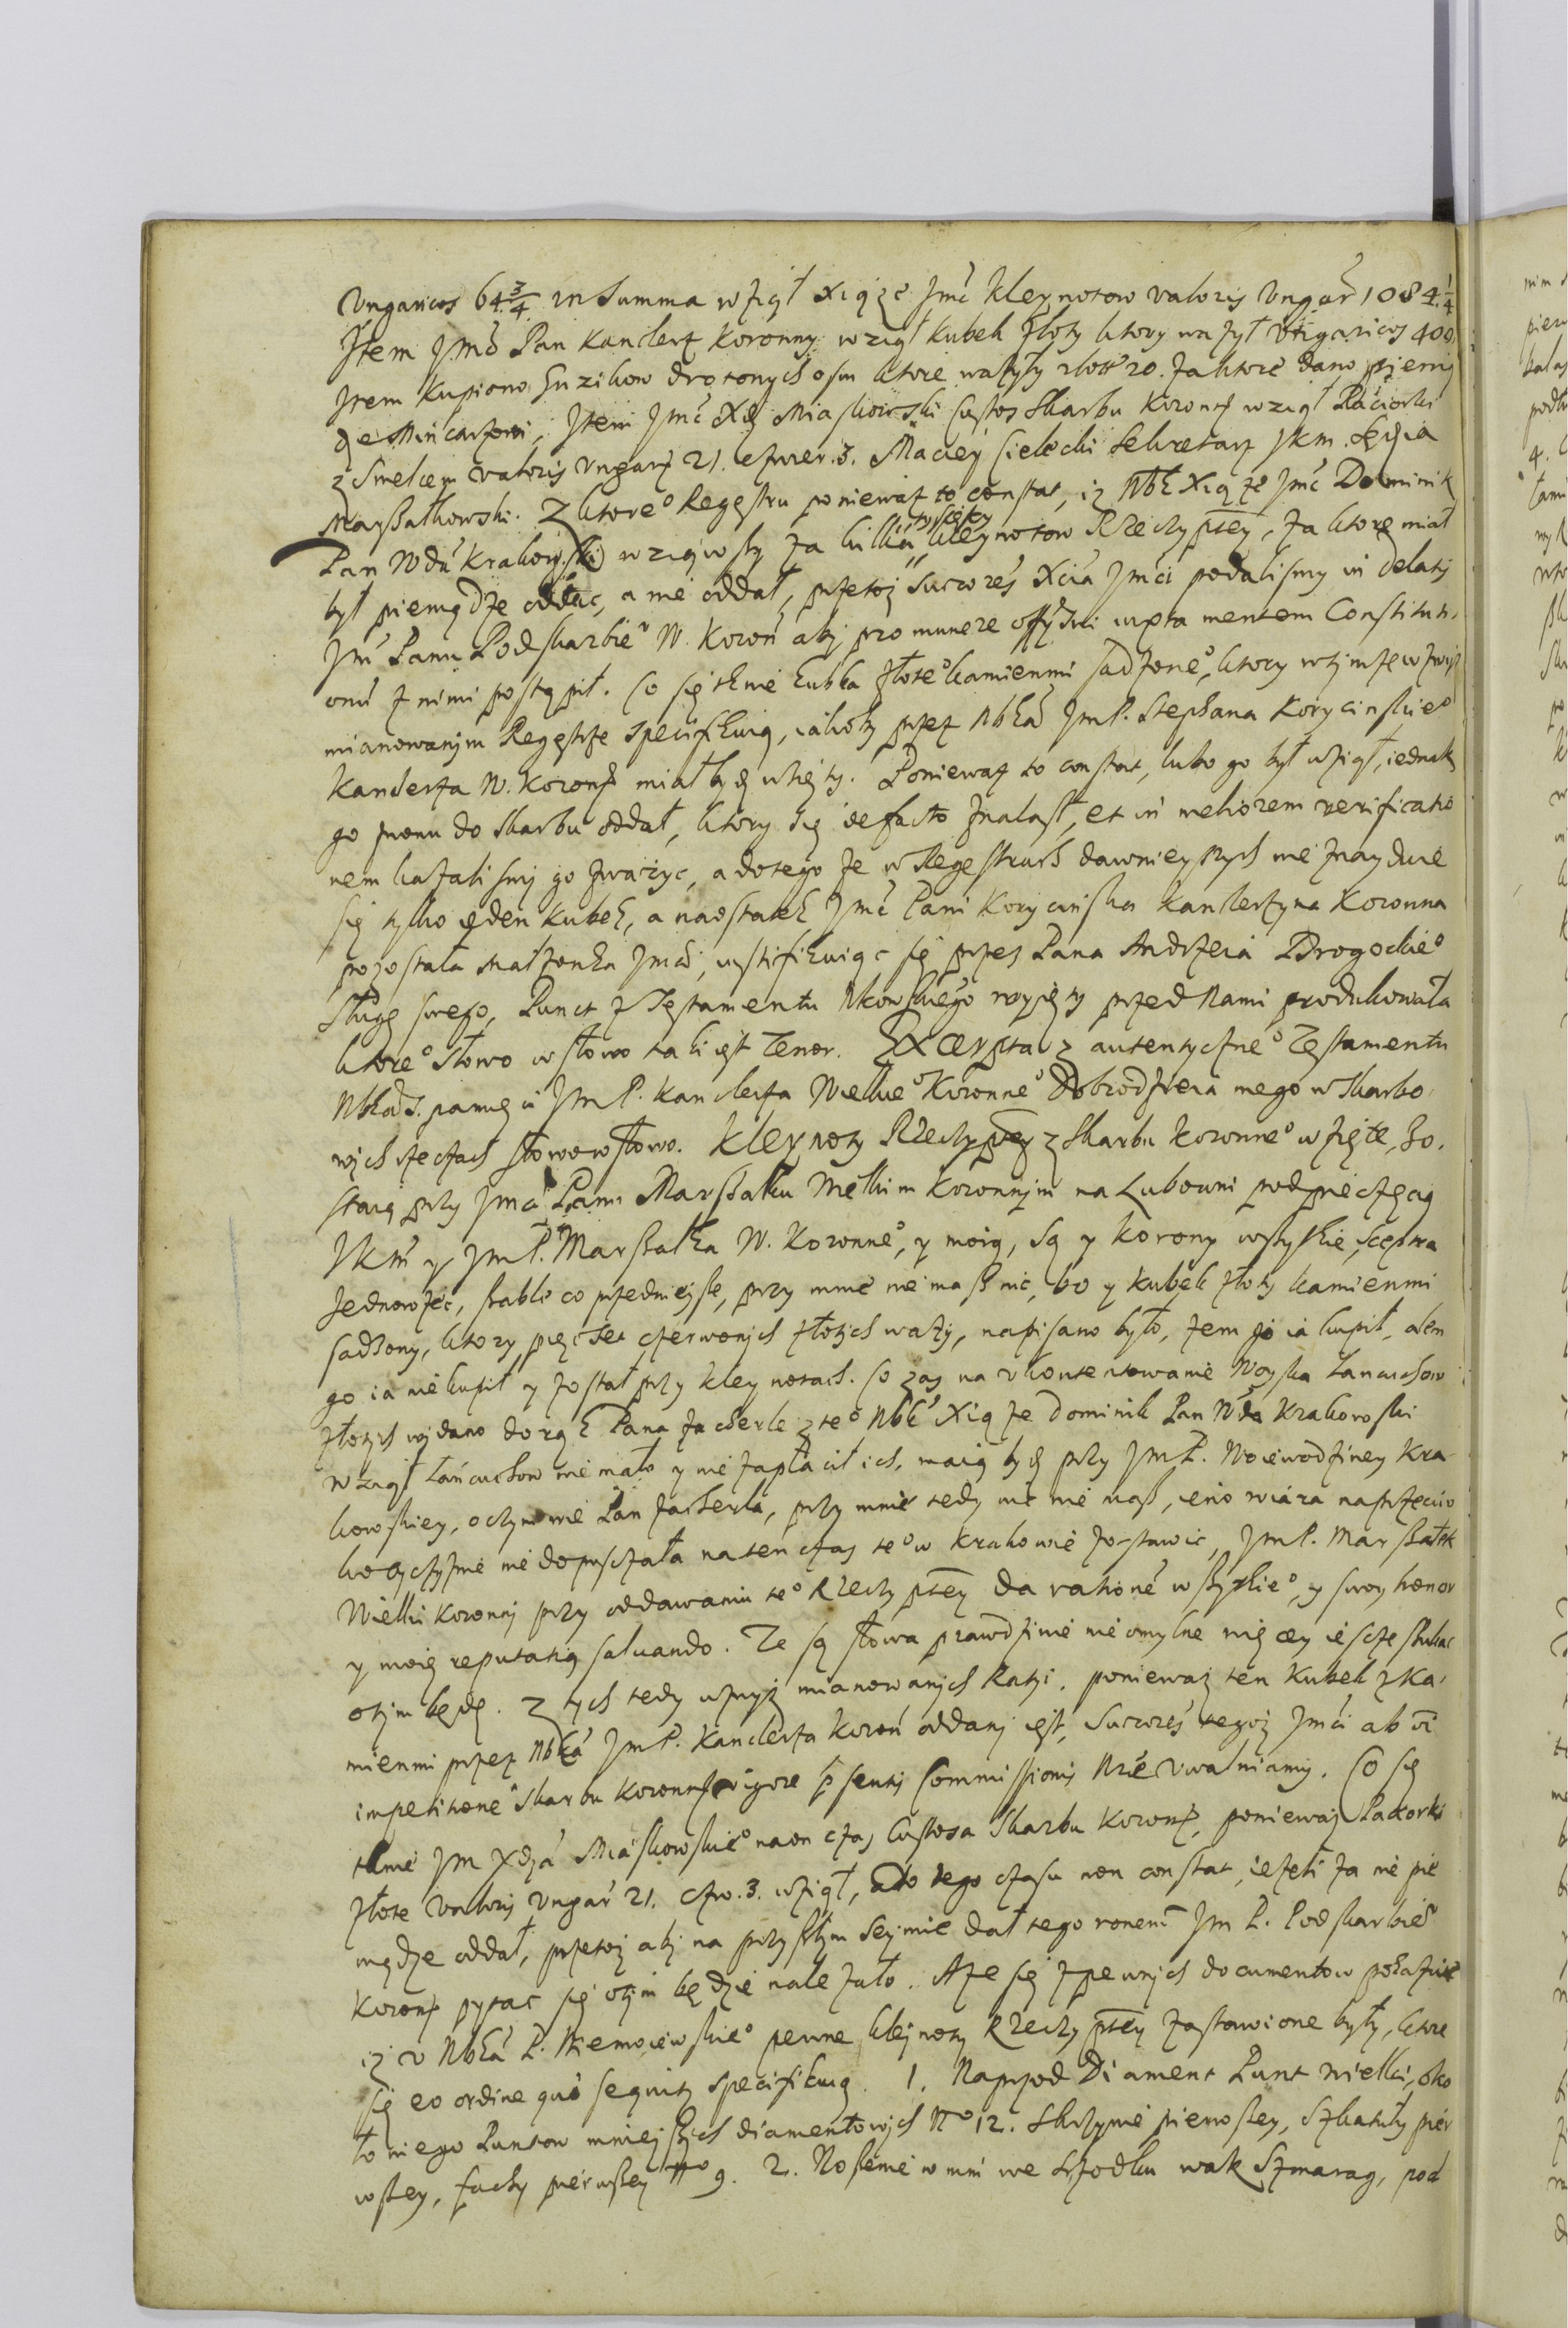 Ungaricos 64 3/4 in summa wziął Xiąże Jmć kleynotow valoris Ungar 1084 1/4
Item Jmć Pan Kanclerz Koronny wziął kubek złoty ktory ważył Ungaricos 400.
Item kupiono Guzikow drotowych osm ktore ważyły 20. za ktore dano pienią
dze Mincarzowi, Item Jmć Xdz Miaskowski Custos Skarbu Koronn wziął Paciorki
z Smelcem valoris Ungar 21. czwer. 3. Maciey Cielecki Sekretarz JKM. Sędzia
Marszałkowski. Z ktore° Regestru poniewaz to constat, iz Nbk Xiąże Jmć Dominik
Pan Wda Krakowski wziąwszy za kilka tysięcy kleynotow Rzeczyptey, za ktore miał
był pieniądze oddac, a nie oddał, przetoż Succores Xcia Jmci podalismy in delatis
Jm Panu Podskarbie° W. Koron aby pro munere officii iuxta mentem Constituti-
onu z nimi postąpił. Co się tknie kubka złote° kamienmi sadzone°, ktory w tymże wzwyż
mianowanym Regestrze specifikuią, iakoby przez Nbka JmP. Stephana Korycinskie°
Kanclerza W. Koronn miał bydz wzięty. Poniewaz to constat, lubo go był wziął, iednak
go znowu do skarbu oddał, ktory się de facto znalazł, et in meliorem verificatio
nem kazalismy go zważyc, a do tego że w Regestrach dawnieyszych nie znayduie
się tylko ieden kubek, a naostatek Jmć Pani Korycinska Kanclerzyna Koronna
pozostała małżonka Jmci, iustifikuiąc się przez Pana Andrzeia Drogockie°
Sługę swego, Punct z Testamentu Nbkowskiego wyięty przed Nami produkowała
ktore° słowo w słowo taki iest Tenor. Excerpta z autentyczne° Testamentu
Nbka S. pamięci JmP. Kanclerza Wielkie° Koronne° Dobrodzieia mego w skarbo-
wych rzeczach słowo w słowo. Kleynoty Rzeczyptey z Skarbu Koronne° wzięte, zo-
staią przy Jmci Panu Marszałku Wielkim Koronnym na Lubowni pod pieczęcią
JKM y JmP. Marszałka W. Koronne°, y moią, są y korony wszystkie, sceptra
Jednorożec, szable co przednieysze, przy mnie nie masz nic, bo y kubek złoty kamienmi
sadzony, ktory pięć set czerwonych złotych waży, napisano było, żem go ia kupił, alem
go ia nie kupił y został przy kleynotach. Co zas na ukontentowanie Woyska Łancuchow
złotych wydano do rąk Pana Zacherle z te° Nbk Xiąże Dominik Pan Wda Krakowski
wziął łańcuchow nie mało y nie zapłacił ich, maią bydz przy JmP. Woiewodziney Kra-
kowskiey, o czym wie Pan Zacherla, przy mnie tedy nic nie masz, ieno wiara naprzeciw-
ko oyczyznie nie dopusczała na ten czas te° w Krakowie zostawic, JmP. Marszałek
Wielki Koronny przy oddawaniu te° Rzeczyptey da rationé wszystkie°, y swoy honor
y moię reputatią salvando. Te są słowa prawdziwie nieomylne więcey iescze szukac
o tym będę. Z tych tedy wzwyż mianowanych Ratyi, poniewaz ten kubek z ka-
mienmi przez Nbka JmP. Kanclerza Koron oddany iest, Succores tegoż Jmci ab oi
impetitione Skarbu Koronn vigore psentis Commissionis Nrae uwalniamy. Co się
tknie Jm Xdza Miaskowskie° na on czas Custosa Skarbu Koronn, poniewaz Paciorki
złote valoris Ungar 21. czw. 3. wziął, a do tego czasu non constat, iezeli za nie pie
niądze oddał, przetoż aby na przyszłym Seymie dał tego ronem Jm P. Podskarbie°
Koronn pytac się o tym będzie należało. A że się z pewnych documentow pokazuie
iz u Nbka P. Niemoiewskie° pewne kleynoty Rzeczyptey zastawione były, ktore
się eo ordine quo sequitr specifikuią. 1. Naprzod Diament Punt wielki, oko
ło niego Puntow mnieyszych diamentowych No 12. Skrzynie pierwszey, Szkatuły pier
wszey, fachy pierwszey No 9. 2. Noszenie w nim we srzodku wak Szmarag, pod